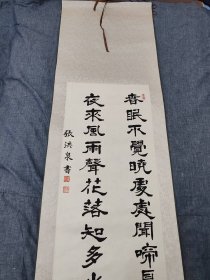 春眠不覺曉處處聞啼鳥
夜來風雨聲花落知多少
張洪泉書